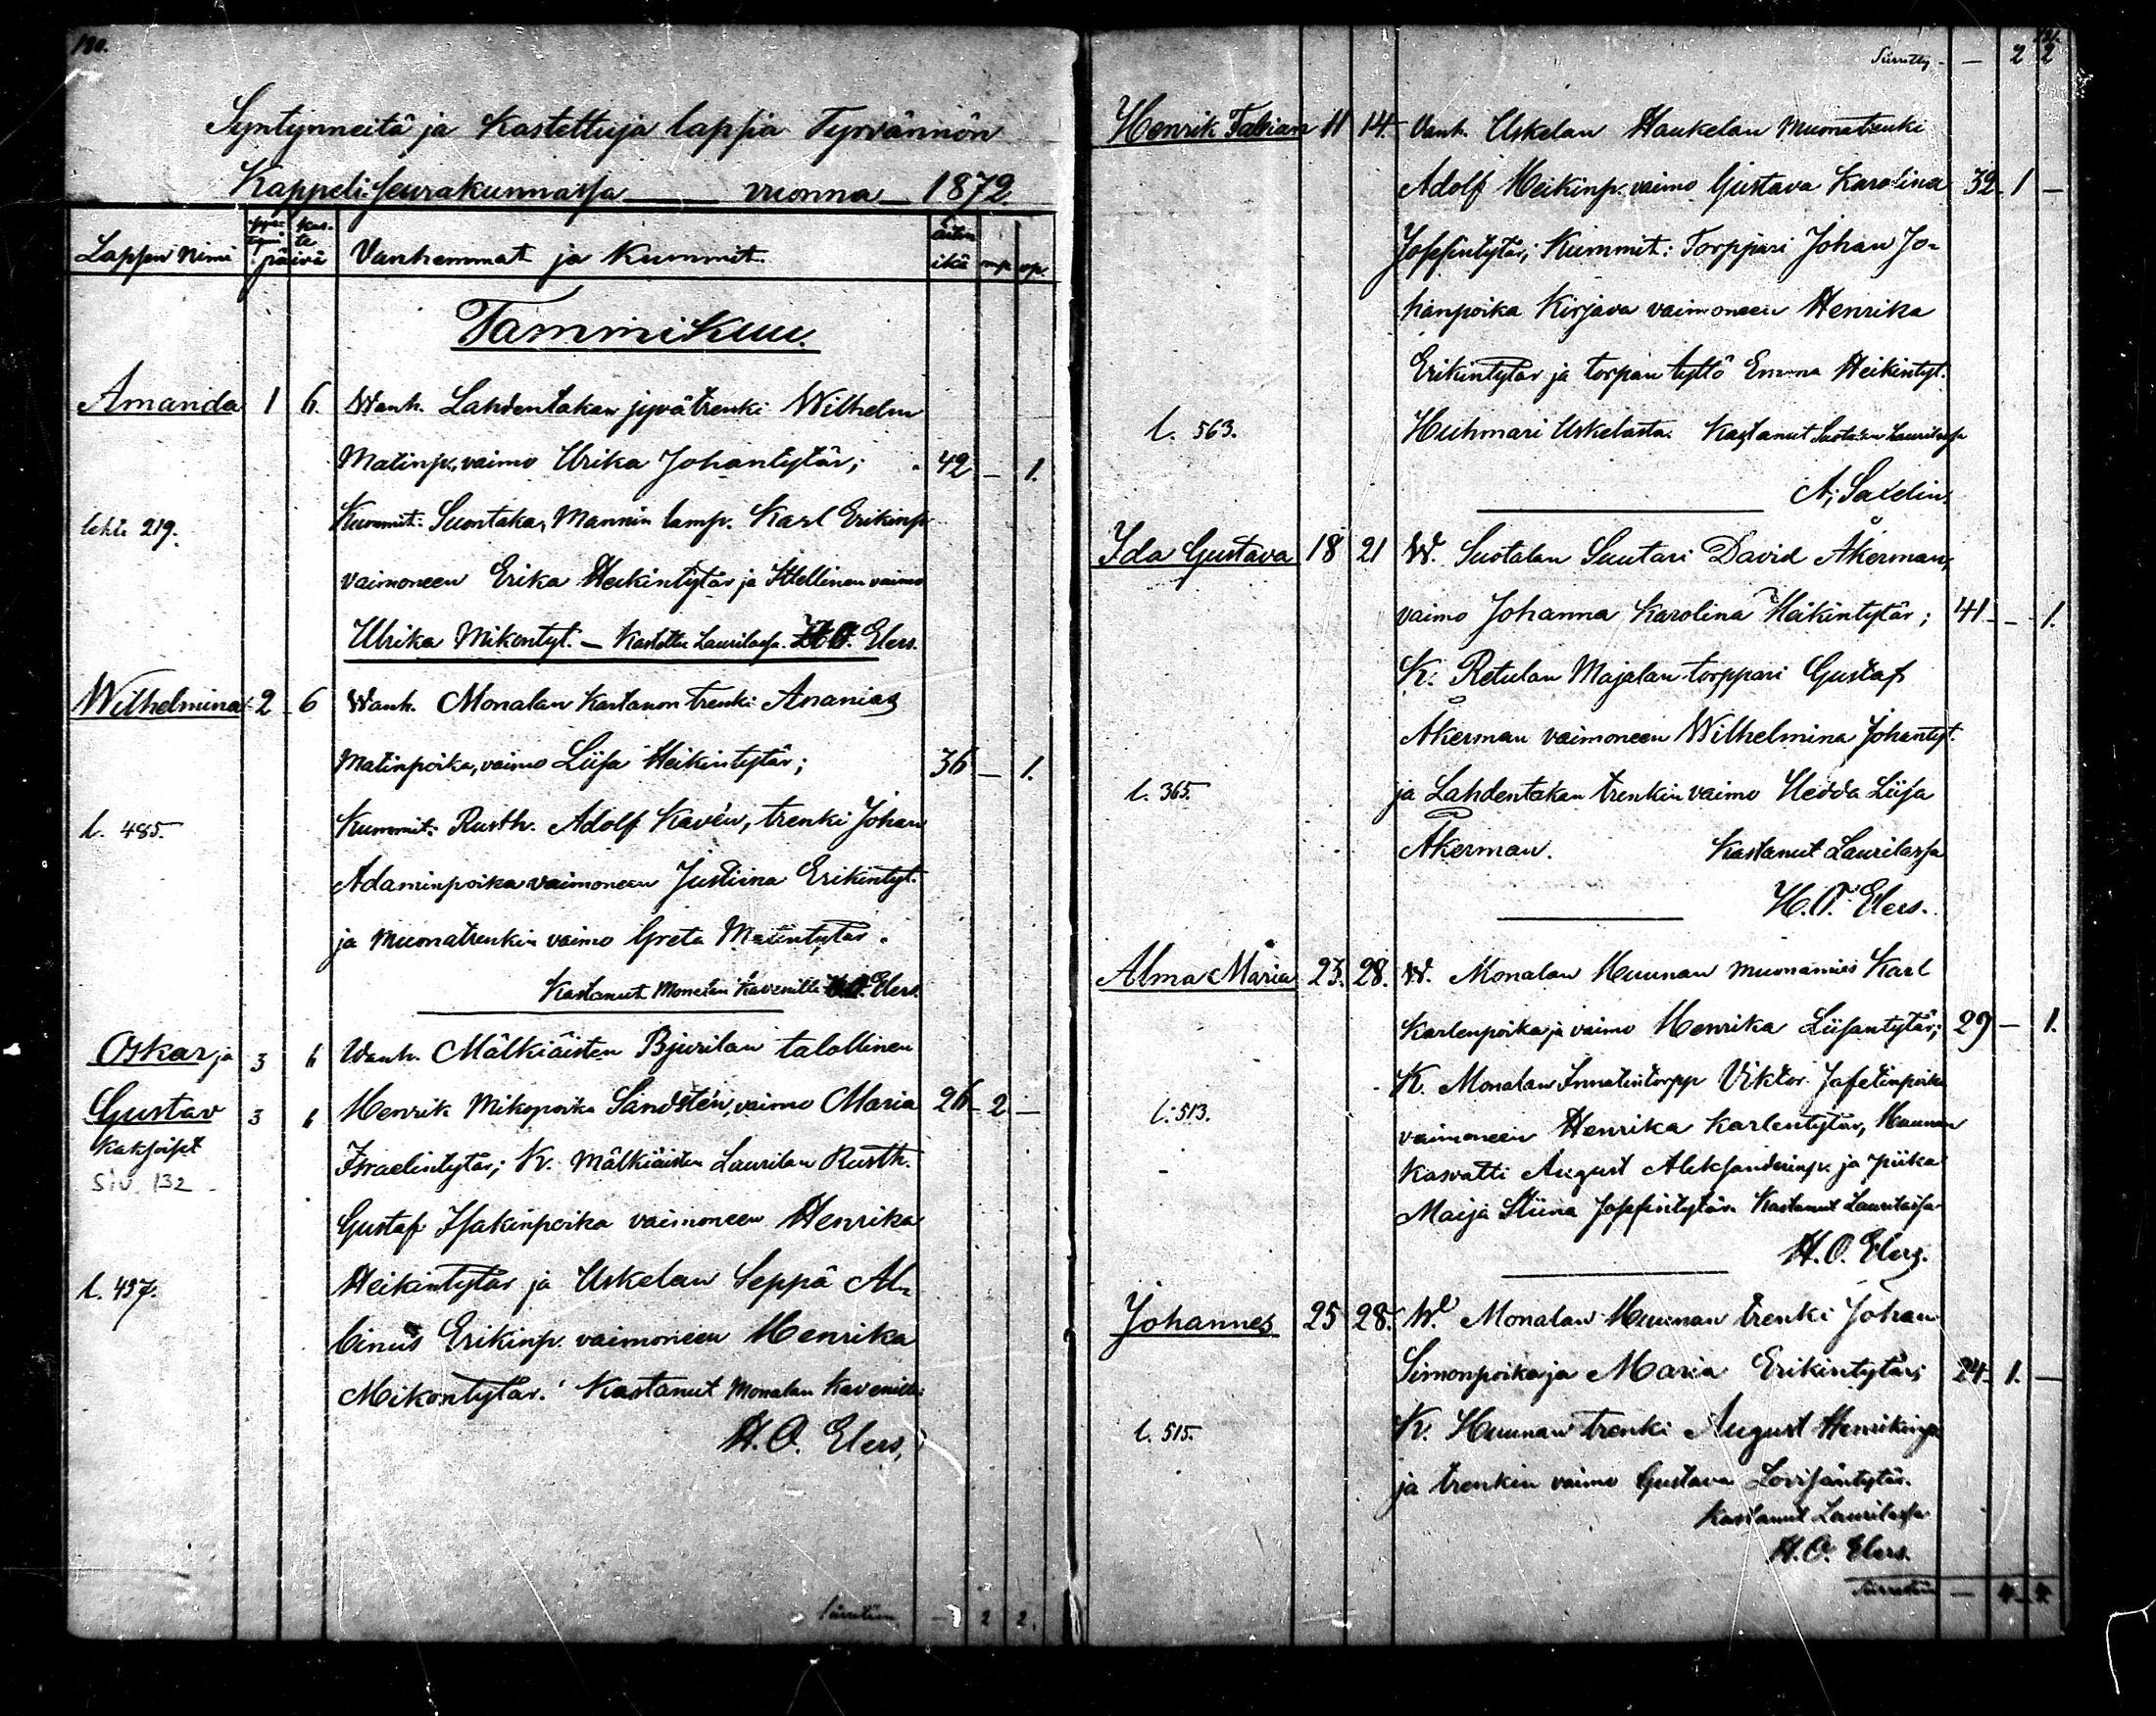 130.
Syntyneitä ja Kastettuja lapsia Tyrvännön
Kappeli seurakunnassa vuonna 1872
Lapsen nimi päivä Vanhemmat ja Kummit. äitin ikä mp. vp.
Tammikuu.
Amanda 1 6. Wanh. Lahdentakan jyvätrenki Wilhelm
Matinp., vaimo Ulrika Johantytär; 42 — 1.
lehti 219. Kummit: Suontaka, Mannin lamp. Karl Erikinp.
vaimoneen Erika Heikintytär ja Itellinen vaimo
Ulrika Mikontyt. — Kastettu Laurilassa. H. O. Elers.
Wilhelmina 2 6 Wanh. Monalan Kartanon trenki Ananias
Matinpoika, vaimo Liisa Heikintytär; 36 — 1.
l. 485. Kummit: Rusth. Adolf Kavén, trenki Johan
Adaminpoika vaimoneen Justiina Erikintyt.
ja muonatrenkin vaimo Greta Matintytär.
Kastanut Monalan Kavenilla H. O. Elers.
Oskar ja 3 6 Wanh. Mälkiäisten Bjurilan talollinen
Gustav 3 6 Henrik Mikonpoika Sandstén, vaimo Maria 26 2 —
Kaksoiset
Israelintytär; K. Mälkiäisten Laurilan Rusth.
Siv. 132
Gustaf Isakinpoika vaimoneen Henrika
l. 457. Heikintytär ja Uskelan Seppä Al-
binus Erikinp. vaimoneen Henrika
Mikontytär. Kastanut Monalan Kavenilla
H. O. Elers.
Siirretään — 2 2.
131.
Siirretty — — 2 2
Henrik Fabian 11 14. Vanh. Uskelan Haukelan Muonatrenki
Adolf Heikinp. vaimo Gustava Karolina 32 1 —
Josefintytär; Kummit: Torppari Johan Jo-
hanpoika Kirjava vaimoneen Henrika
Erikintytär ja torpan tyttö Emma Heikintyt.
l. 563. Huhmari Uskelasta. Kastanut Suotalan Laurilassa
A. Saxelin.
Ida Gustava 18 21 W. Suotalan Suutari David Åkerman,
vaimo Johanna Karolina Heikintytär; 41 — 1.
K. Retulan Majalan torppari Gustaf
Åkerman vaimoneen Wilhelmina Johantyt.
l. 365. ja Lahdentakan trenkin vaimo Hedda Liisa
Åkerman. Kastanut Laurilassa
H. O. Elers.
Alma Maria 23. 28. W. Monalan Huunan muonamies Karl
Karlenpoika ja vaimo Henrika Liisantytär; 29 — 1.
K. Monalan Innatin torpp Viktor Jafetinpoika
l. 513. vaimoneen Henrika Karlentytär, Huunan
Kasvatti August Aleksanderinp. ja piika
Maija Stiina Josefintytär. Kastanut Laurilassa
H. O. Elers.
Johannes 25 28. W. Monalan Huunan trenki Johan
Simonpoika ja Maria Erikintytär; 24 1. —
l. 515. K. Huunan trenki August Henrikinp.
ja trenkin vaimo Gustava Lovisantytär.
Kastanut Laurilassa
H. O. Elers.
Siirretään — 4 4